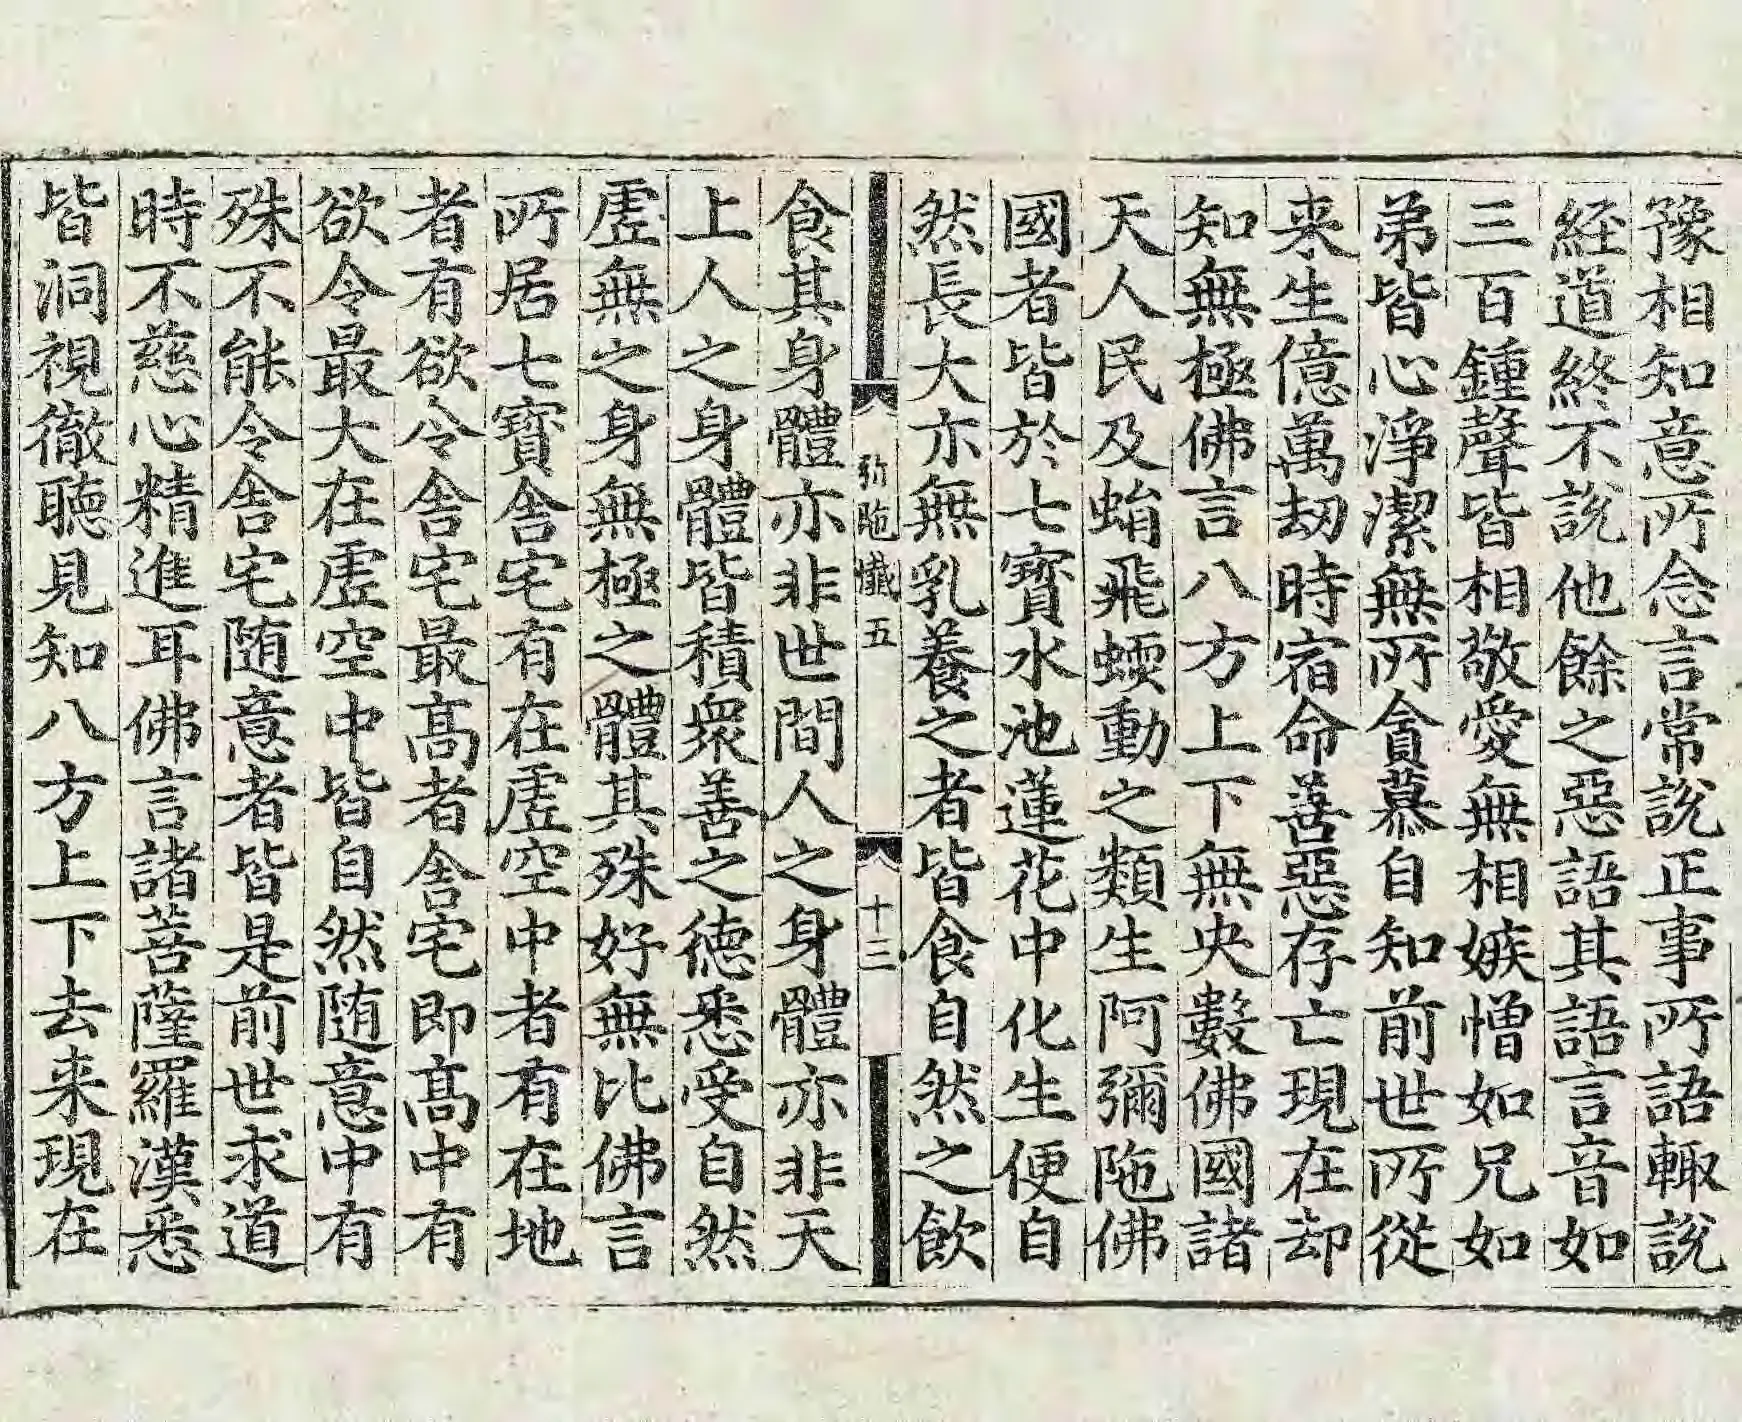 豫相知意所念言常說正事所語輙說
経道終不說他餘之惡語其語言音如
三百鍾聲皆相敬愛無相嫉憎如兄如
弟皆心淨潔無所貪慕自知前世所從
来生億萬劫時宿命善惡存亡現在却
知無極佛言八方上下無央數佛國諸
天人民及蜎飛蝡動之類生阿彌陁佛
國者皆於七寳水池蓮花中化生便自
然長大亦無乳養之者皆食自然之飲
弥陁懺五
十三
食其身體亦非世間人之身體亦非天
上人之身體皆積衆善之德悉受自然
虗無之身無極之體其殊好無比佛言
所居七寳舍宅有在虗空中者有在地
者有欲令舍宅最髙者舍宅即髙中有
欲令最大在虗空中皆自然随意中有
殊不能令舍宅随意者皆是前世求道
時不慈心精進耳佛言諸菩薩羅漢悉
皆洞視徹聽見知八方上下去来現在